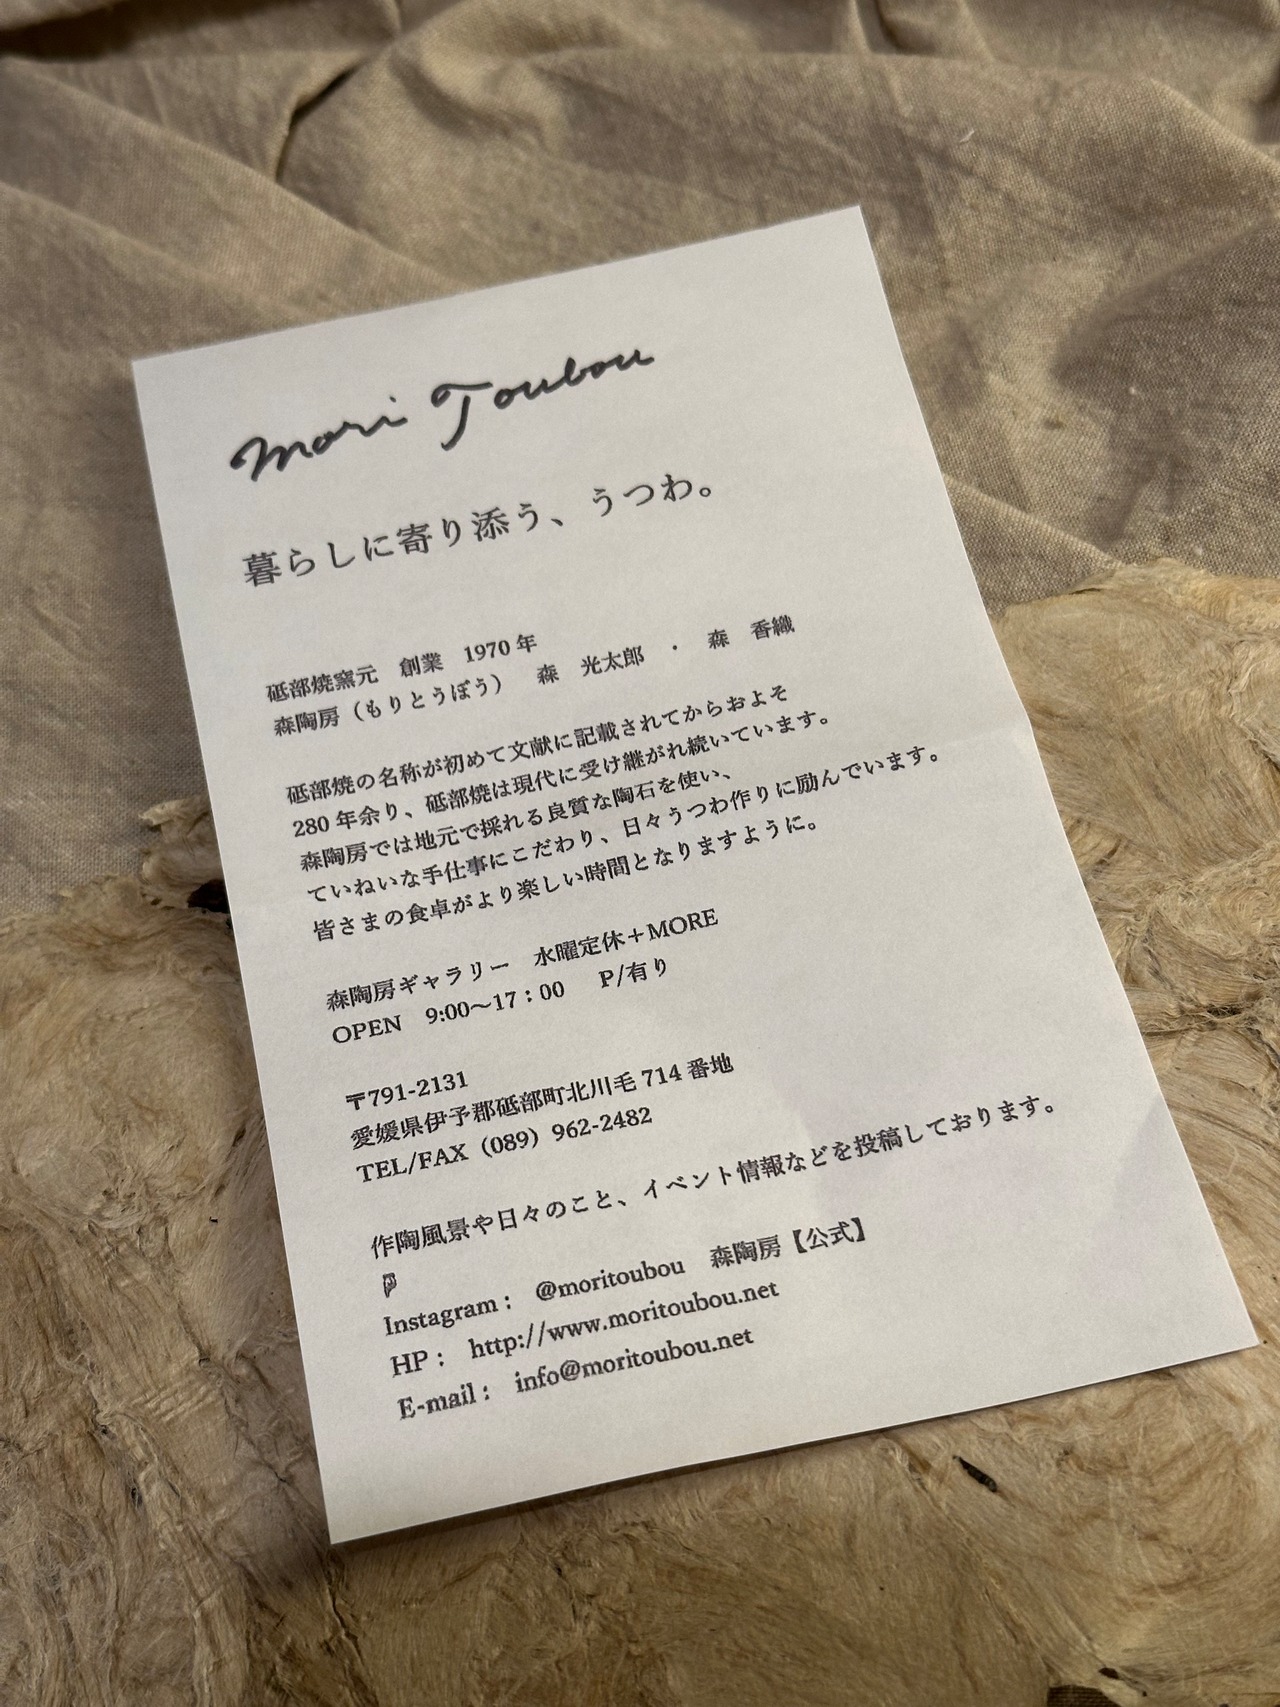 Mori Toubou
暮らしに寄り添う、うつわ。
砥部焼窯元　創業　1970 年
森陶房（もりとうぼう）　森　光太郎　・　森　香織
砥部焼の名称が初めて文献に記載されてからおよそ
280 年余り、砥部焼は現代に受け継がれ続いています。
森陶房では地元で採れる良質な陶石を使い、
ていねいな手仕事にこだわり、日々うつわ作りに励んでいます。
皆さまの食卓がより楽しい時間となりますように。
森陶房ギャラリー　水曜定休＋MORE
OPEN　9:00～17：00　P/有り
〒791-2131
愛媛県伊予郡砥部町北川毛 714 番地
TEL/FAX（089）962-2482
作陶風景や日々のこと、イベント情報などを投稿しております。
Instagram：　@moritoubou　森陶房【公式】
HP：　http://www.moritoubou.net
E-mail：　info@moritoubou.net